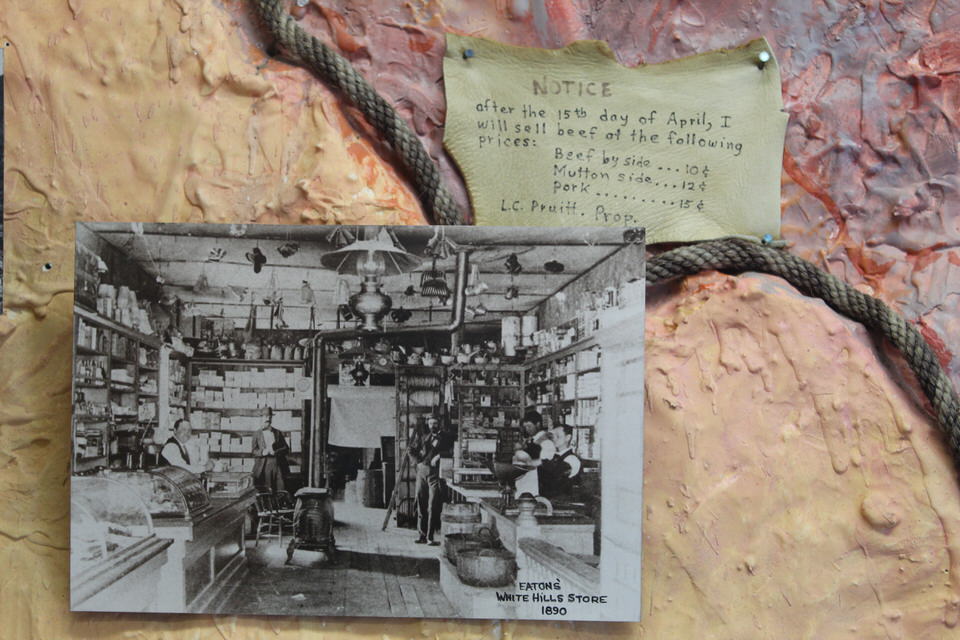 NOTICE
after the 15th day of April, I
will sell beef at the following
prices:
Beef by side ... 10¢
Mutton side... 12¢
Pork ......... 15¢
L.C. Pruitt. Prop.
EATONS'
WHITE HILLS STORE
1890